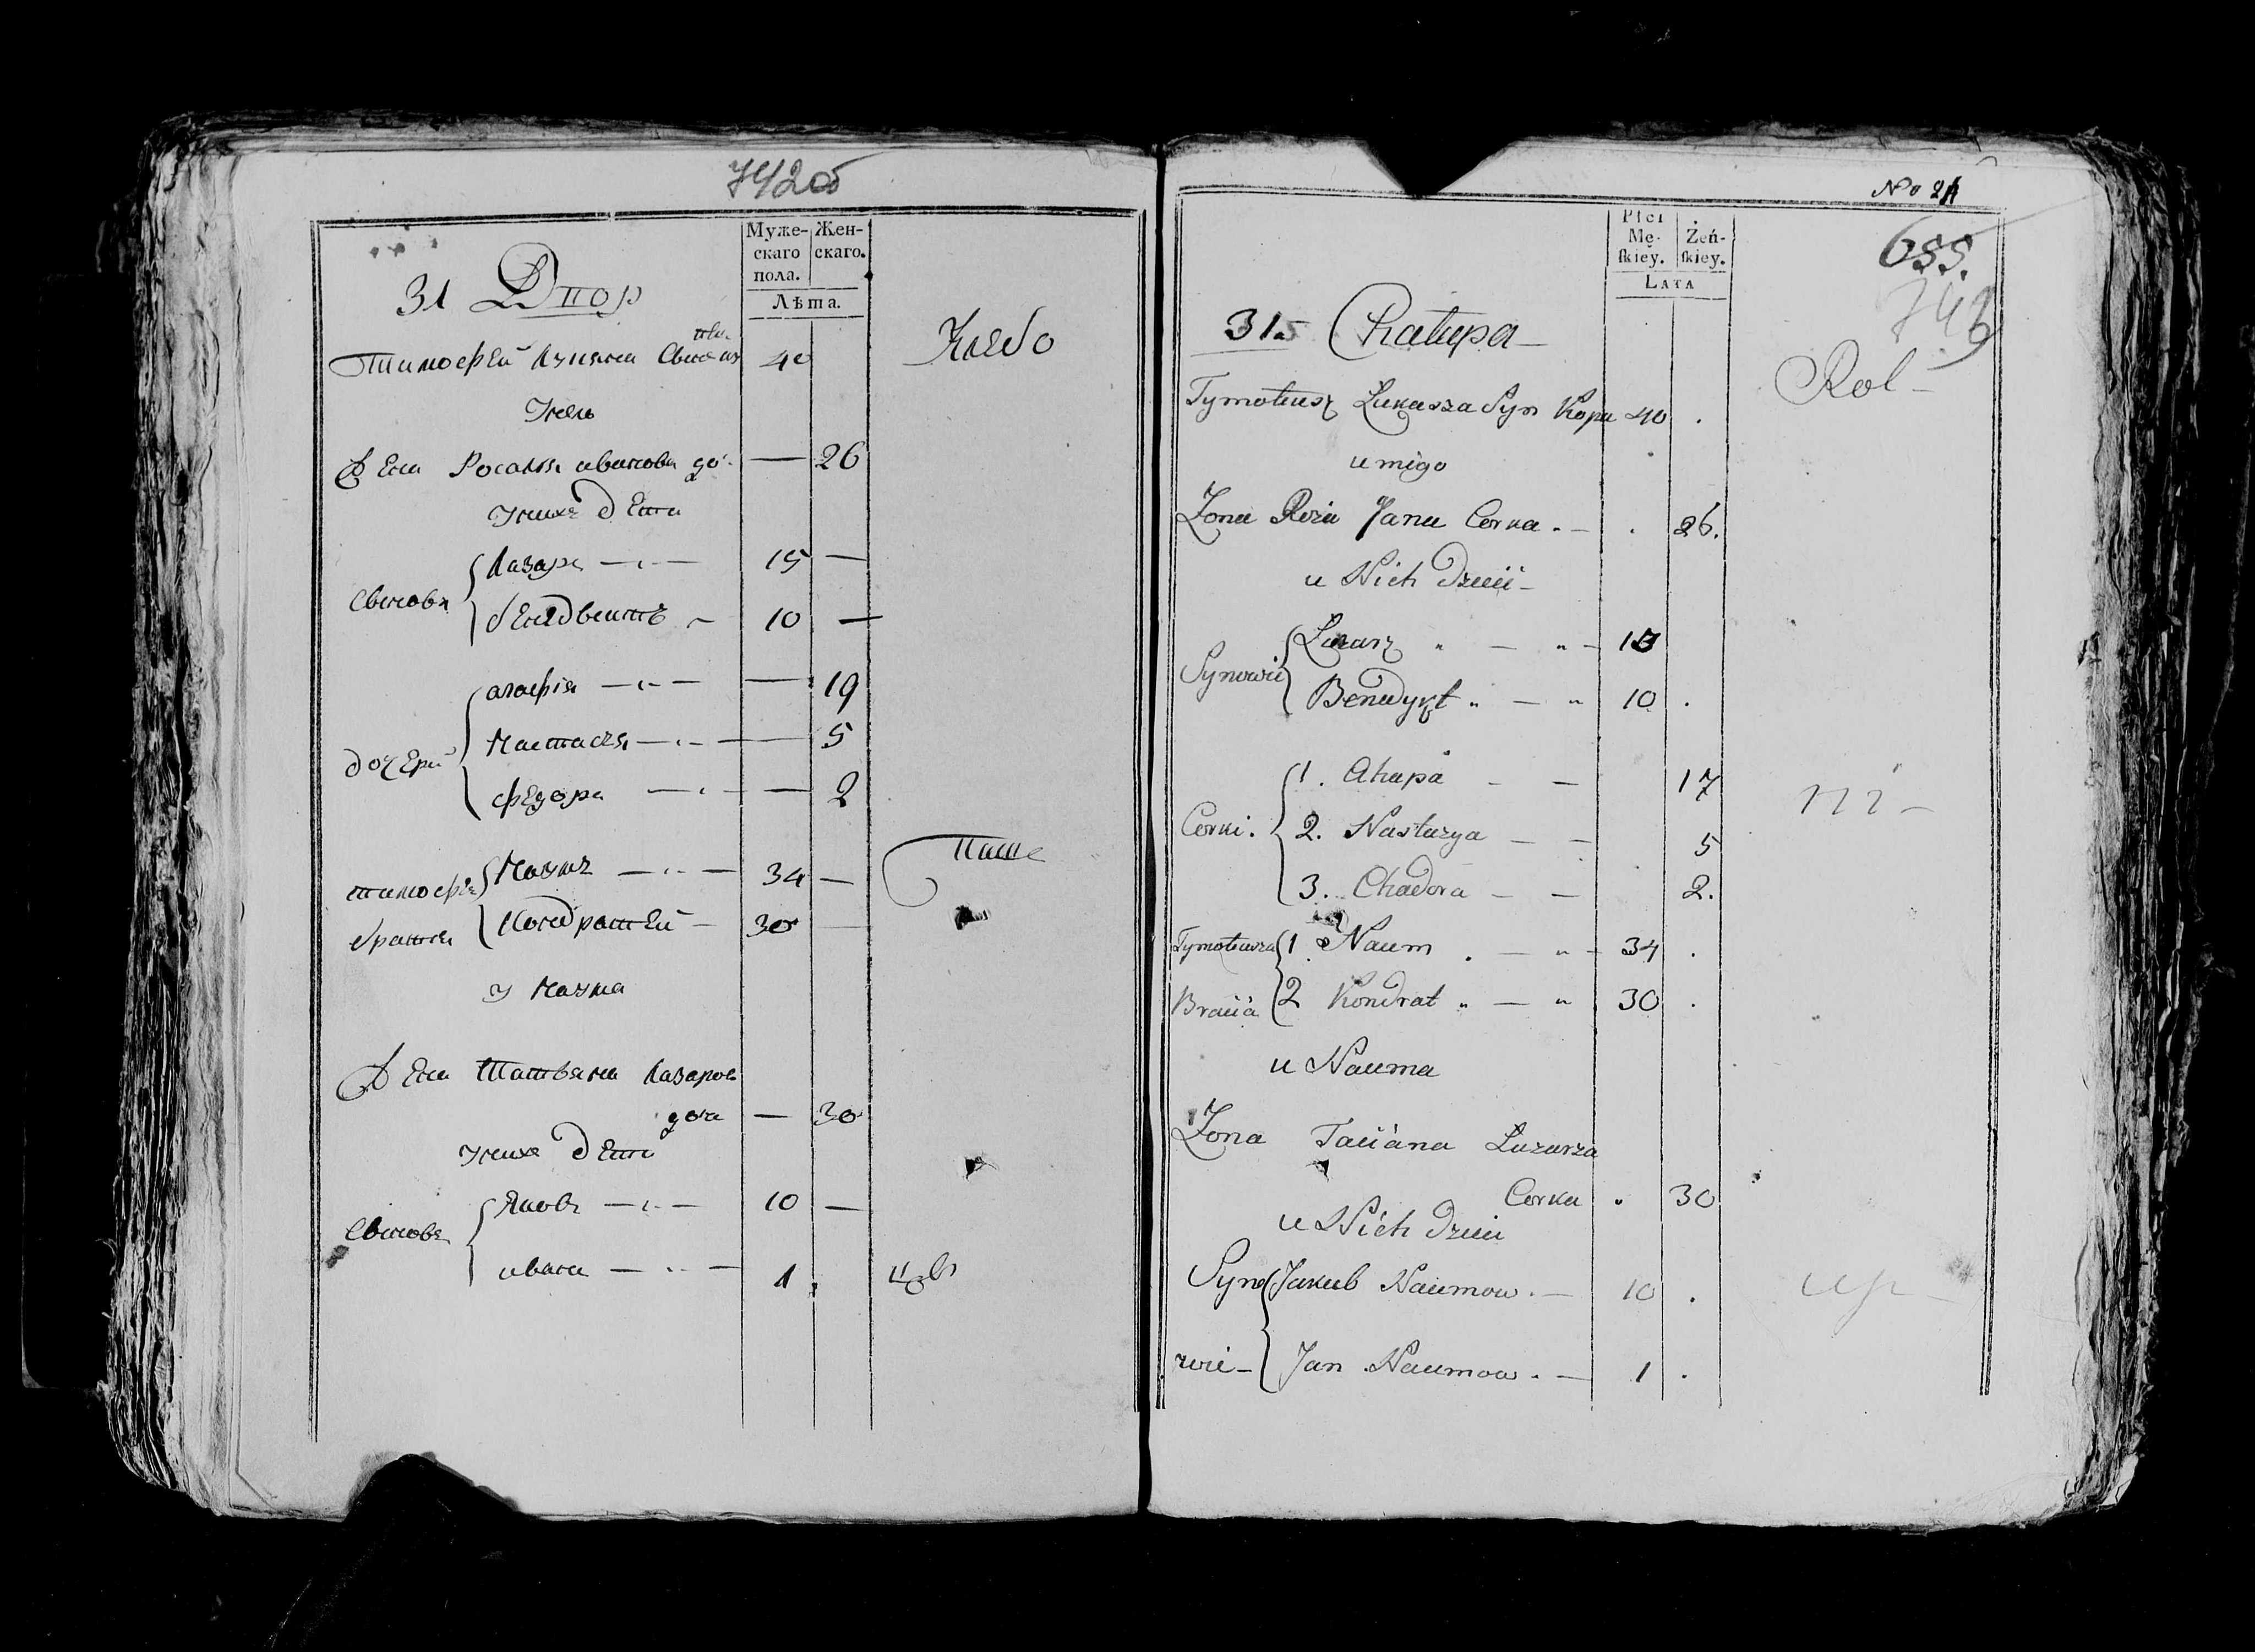 742об
Муже-
скаго
пола.
Жен-
скаго.
Лѣта.
31 Двор
Тимофей 40
Хлебо
Жена Росалия иванова до. — 26
У них дети
Сынова
Лазарь — 15 —
бенедвитъ 10 —
дочери
агафія — 19
Настася — 5
федора — 2
тимофея
братя
Наумъ — 34 —
Кондратей — 30 —
Паше
У Наума
Жена Татьяна Лазаров
доч — 30
У них дети
Сынова
Яковъ — 10 —
иванъ — 1
No 24
Płci
Mę-
ſkiey.
Żeń-
ſkiey.
LATA
655.
743
31 Chałupa
Rol-
Tymoteusz Łukasza Syn 40 .
u niego
Zona Roza Jana Corka . — . 26.
u Nich Dzieci
Synowie
Łazarz " — " —
Benedykt " — " 10 .
Corki.
1. Ahapa — — 17
2. Nastazya — — 5
3. Chadora — — 2.
ni-
Tymoteusza
Bracia
1 Naum . — " — 34 .
2 Kondrat " — " 30 .
u Nauma
Zona Taciana Łazarza
Corka . 30
u Nich Dzieci
Syno
wie-
Jakub Naumow . — 10 .
Jan Naumow . — 1 .